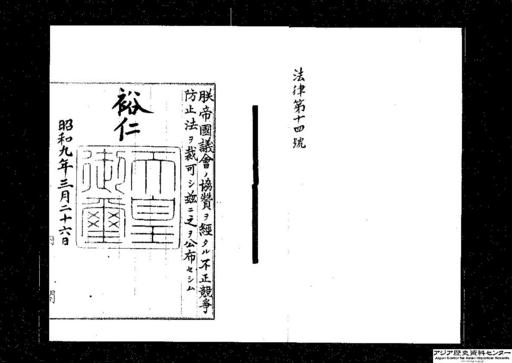 法律第十四號
朕帝國議會ノ協贊ヲ經タル不正競爭
防止法ヲ裁可シ茲ニ之ヲ公布セシム
裕仁
天皇
御璽
昭和九年三月二十六日
アジア歴史資料センター
Japan Center for Asian Historical Records